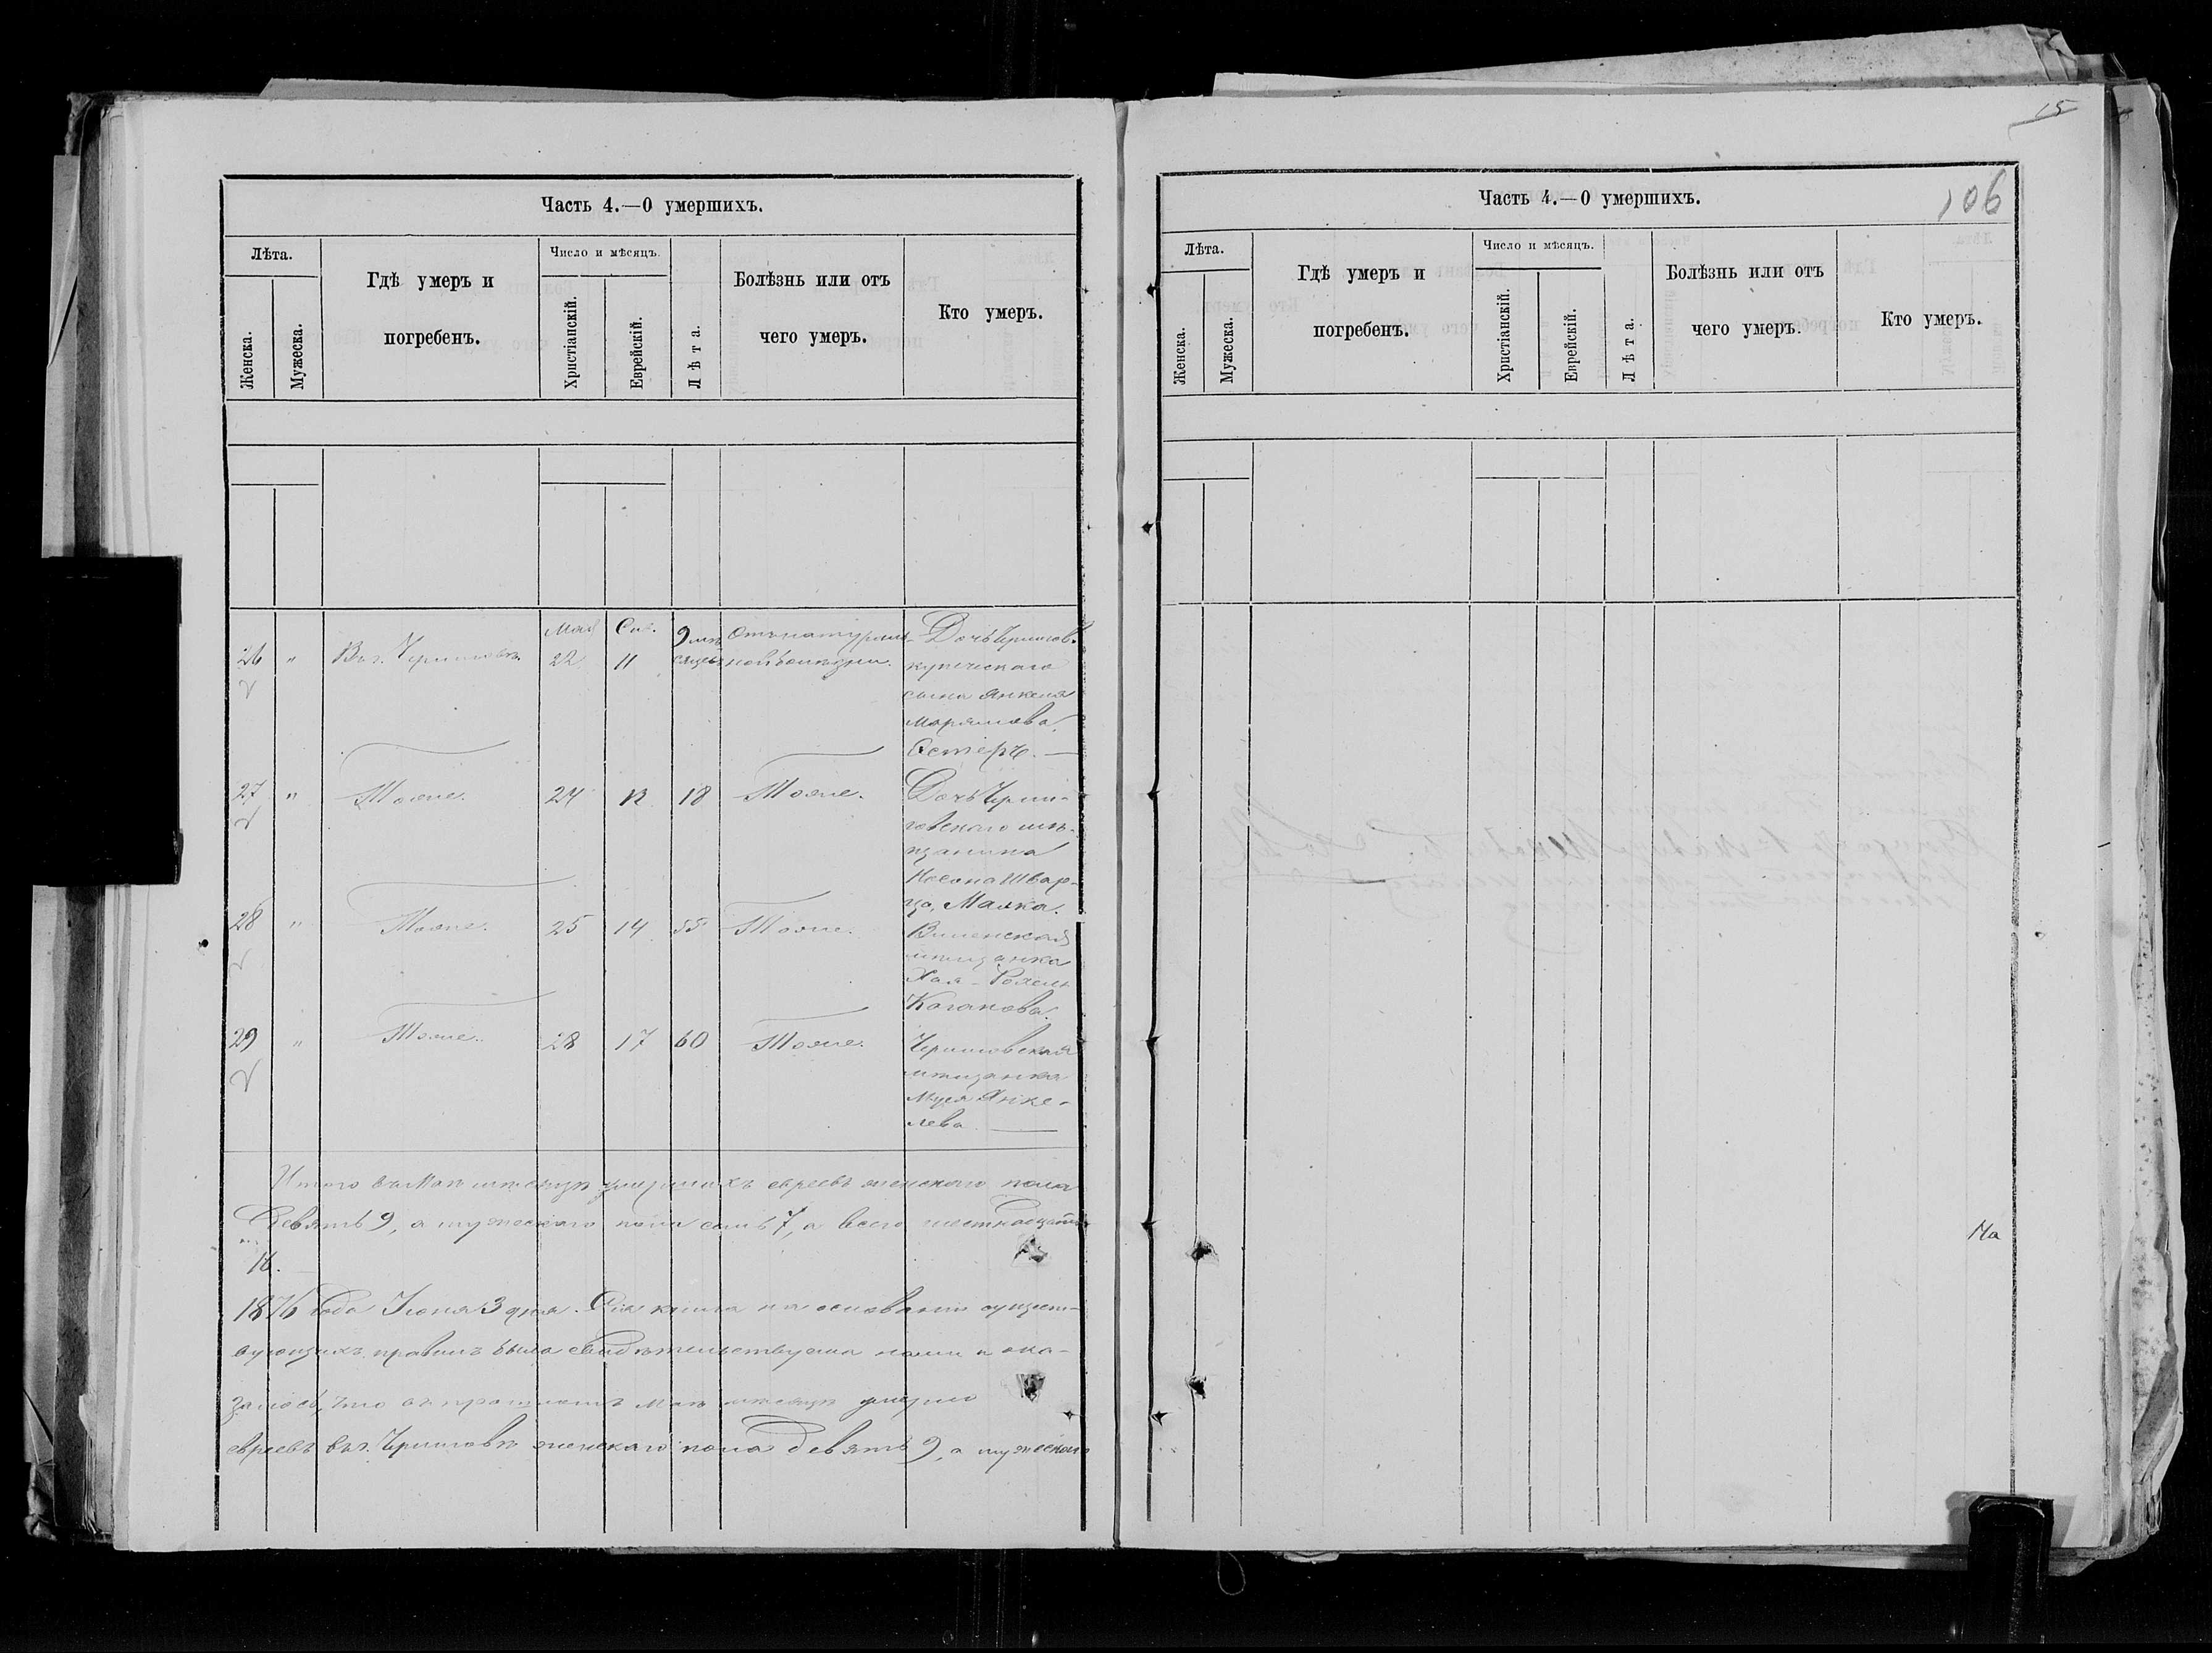 Часть 4.—О умершихъ.
Лѣта.
Женска.
Мужеска.
Гдѣ умеръ и
погребенъ.
Число и мѣсяцъ.
Христіанскій.
Еврейскій.
Лѣта.
Болѣзнь или отъ
чего умеръ.
Кто умеръ.
Мая Сив.
26 " Въ г. Черниговѣ 22 11 9 мѣсяцевъ Отъ натуральной болѣзни. Дочь Чернигов.
купеческаго
сына Янкеля
Марьямова,
Естеръ. —
27 " Тоже. 24 13 18 Тоже. Дочь Черни-
говскаго мѣ-
щанина
Носона Швар-
ца, Малка.
28 " Тоже. 25 14 55 Тоже. Виленская
мѣщанка
Хая-Рохель
Каганова.
29 " Тоже. 28 17 60 Тоже. Черниговская
мѣщанка
Муся Янке-
лева —
Итого въ Маѣ мѣсяцѣ умершихъ евреевъ женскаго пола
девять 9, а мужескаго пола семь 7, а всего шестнадцать
16.
1876 года Іюня 3 дня. Сія книга на основаніи сущест-
вующихъ правилъ была свидѣтельствуема нами и ока-
залось, что въ прошломъ Маѣ мѣсяцѣ умерло
евреевъ въ г. Черниговѣ женскаго пола девять 9, а мужескаго
15
106
Часть 4.—О умершихъ.
Лѣта.
Женска.
Мужеска.
Гдѣ умеръ и
погребенъ.
Число и мѣсяцъ.
Христіанскій.
Еврейскій.
Лѣта.
Болѣзнь или отъ
чего умеръ.
Кто умеръ.